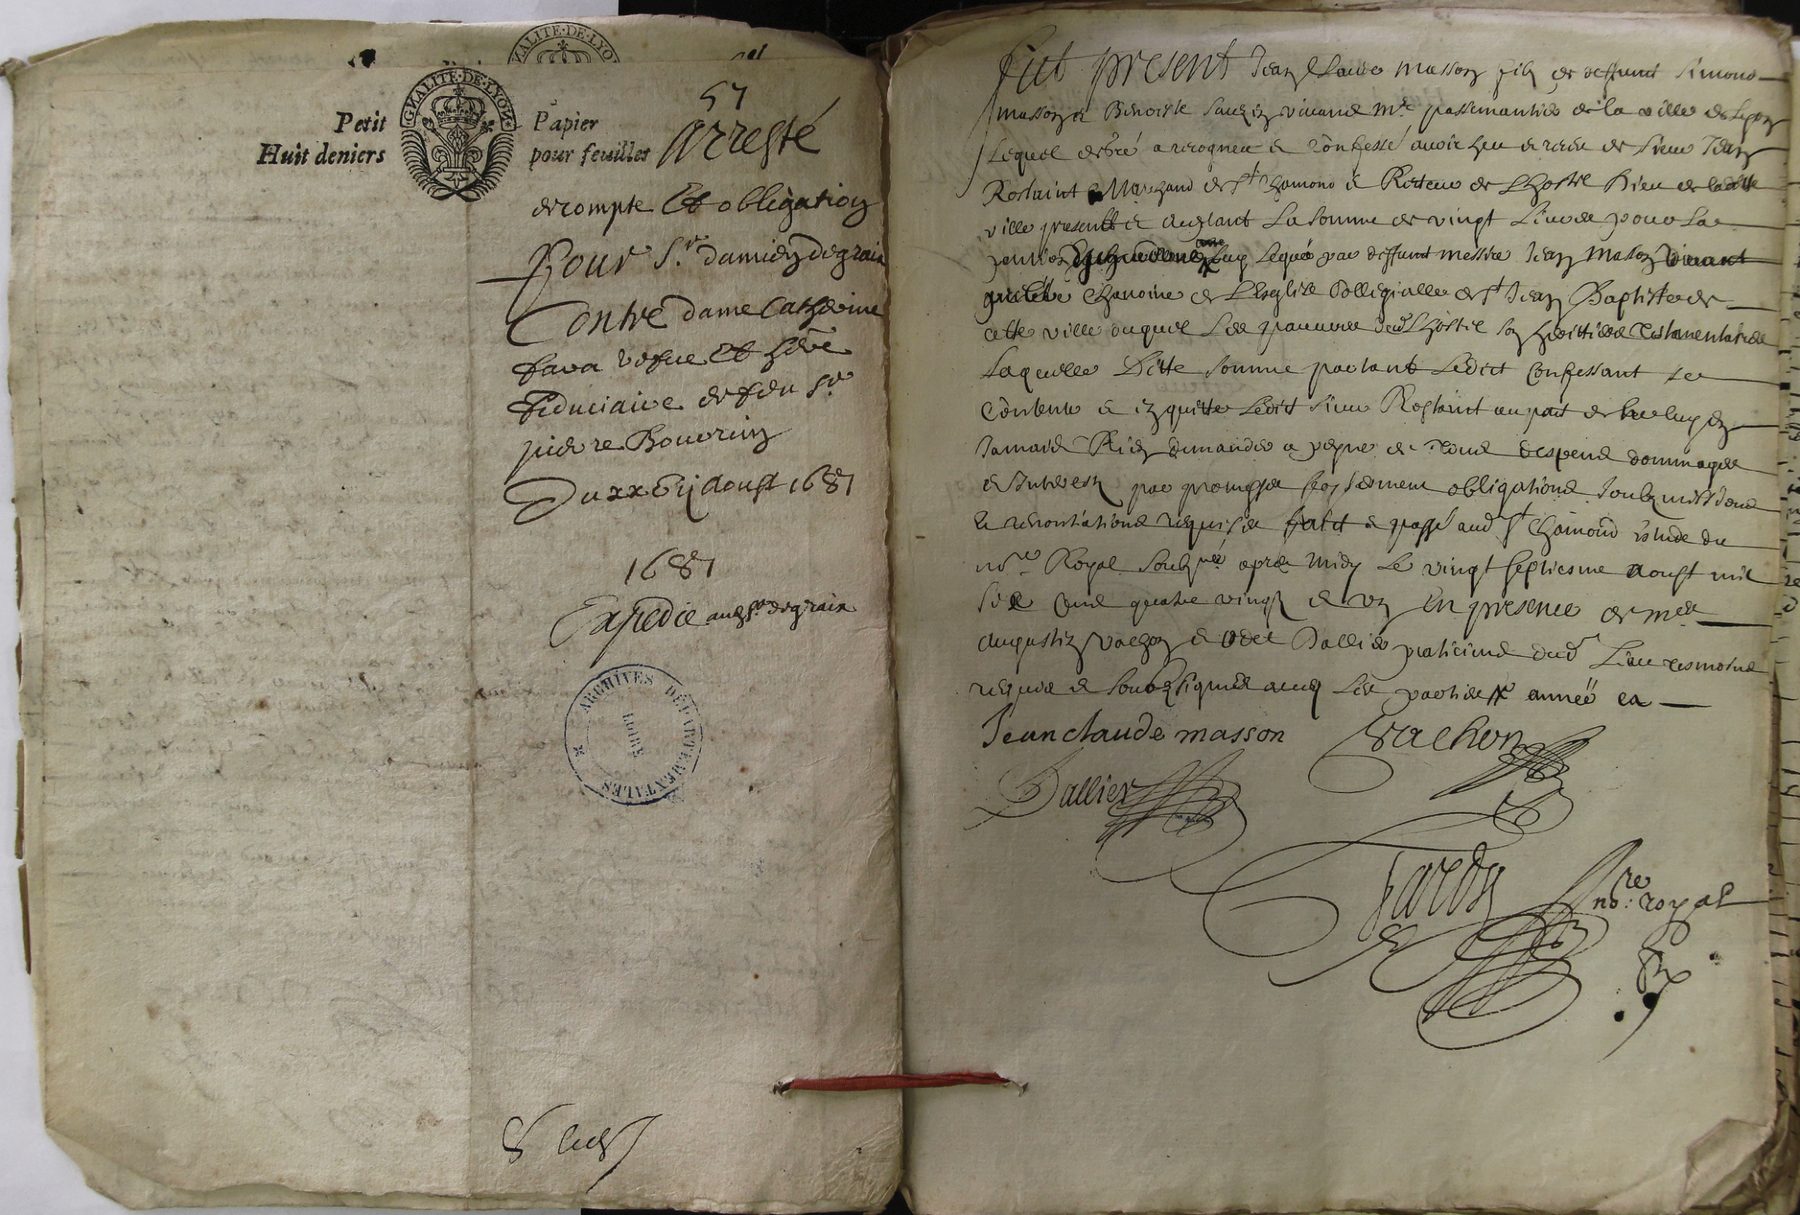 GNALITE·DE·LYON
Petit Papier
Huit deniers pour feuilles
57
Arresté
de compte Et obligation
Pour Sr. damien degraix
Contre dame Catherine
fara vefue Et here
fiduciaire de feu Sr
pierre Bouerin
Du xxvij Aoust 1681
1681
Expedie aud Sr. degraix
ARCHIVES DEPARTEMENTALES
LOIRE
fut present Jean Claude masson filz de deffunt Simond
masson et Benoiste vivand Mr. passemantier de la ville de Lyon
Lequel de gré a recogneu et confessé avoir heu et receu de Sieur Jean
Rostaint Marchand de St chamond et Recteur de Lhostel Dieu de ladite
ville present et acceptant La somme de vingt Livres pour La
a Luy Legué par deffunt messire Jean Masson vivant
chanoine de L'esglise Collegialle de St Jean Baptiste de
cette ville auquel Les pauvres dud Lhostel son heritiers Testamentaire
Laquelle Ditte somme partant Ledict Confessant se
Contente et en quitte Ledit Sieur Rostaint au pact de ne luy en
Jamais Rien demander a peyne de Tous despens dommages
et Interestz par promesse foy serment obligations soubzmissions
et renontiations requises faict et passé aud St chamond estude du
nore Royal soubzné apres midy Le vingt septiesme aoust mil
six cens quatre vingtz et un En presence de mes
Augustin vachon et odet Dallier praticiens dud Lieu tesmoins
requis et soubzsignés avec Les parties
Jean claude masson Vachon
Dallier
Jardin nore: royal